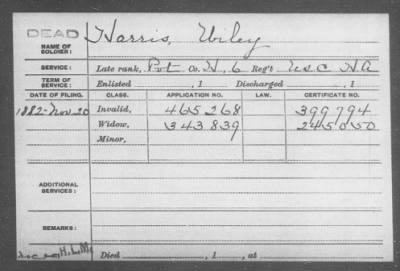 DEAD
NAME OF SOLDIER: Harris, Wiley
SERVICE: Late rank, Pvt Co. H, 6 Reg't U.S.C. H.A
TERM OF SERVICE: Enlisted , 1 Discharged , 1
DATE OF FILING. CLASS. APPLICATION NO. LAW. CERTIFICATE NO.
1882-Nov 20 Invalid, 465268 399794
Widow, 343839 245050
Minor,
ADDITIONAL SERVICES:
REMARKS:
Died , 1 , at